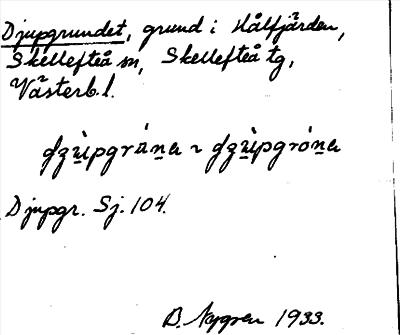 Djupgrundet, grund i Hålfjärden,
Skellefteå sn, Skellefteå tg,
Västerb.l.
Djupgr. Sj. 104.
B. Nygren 1933.